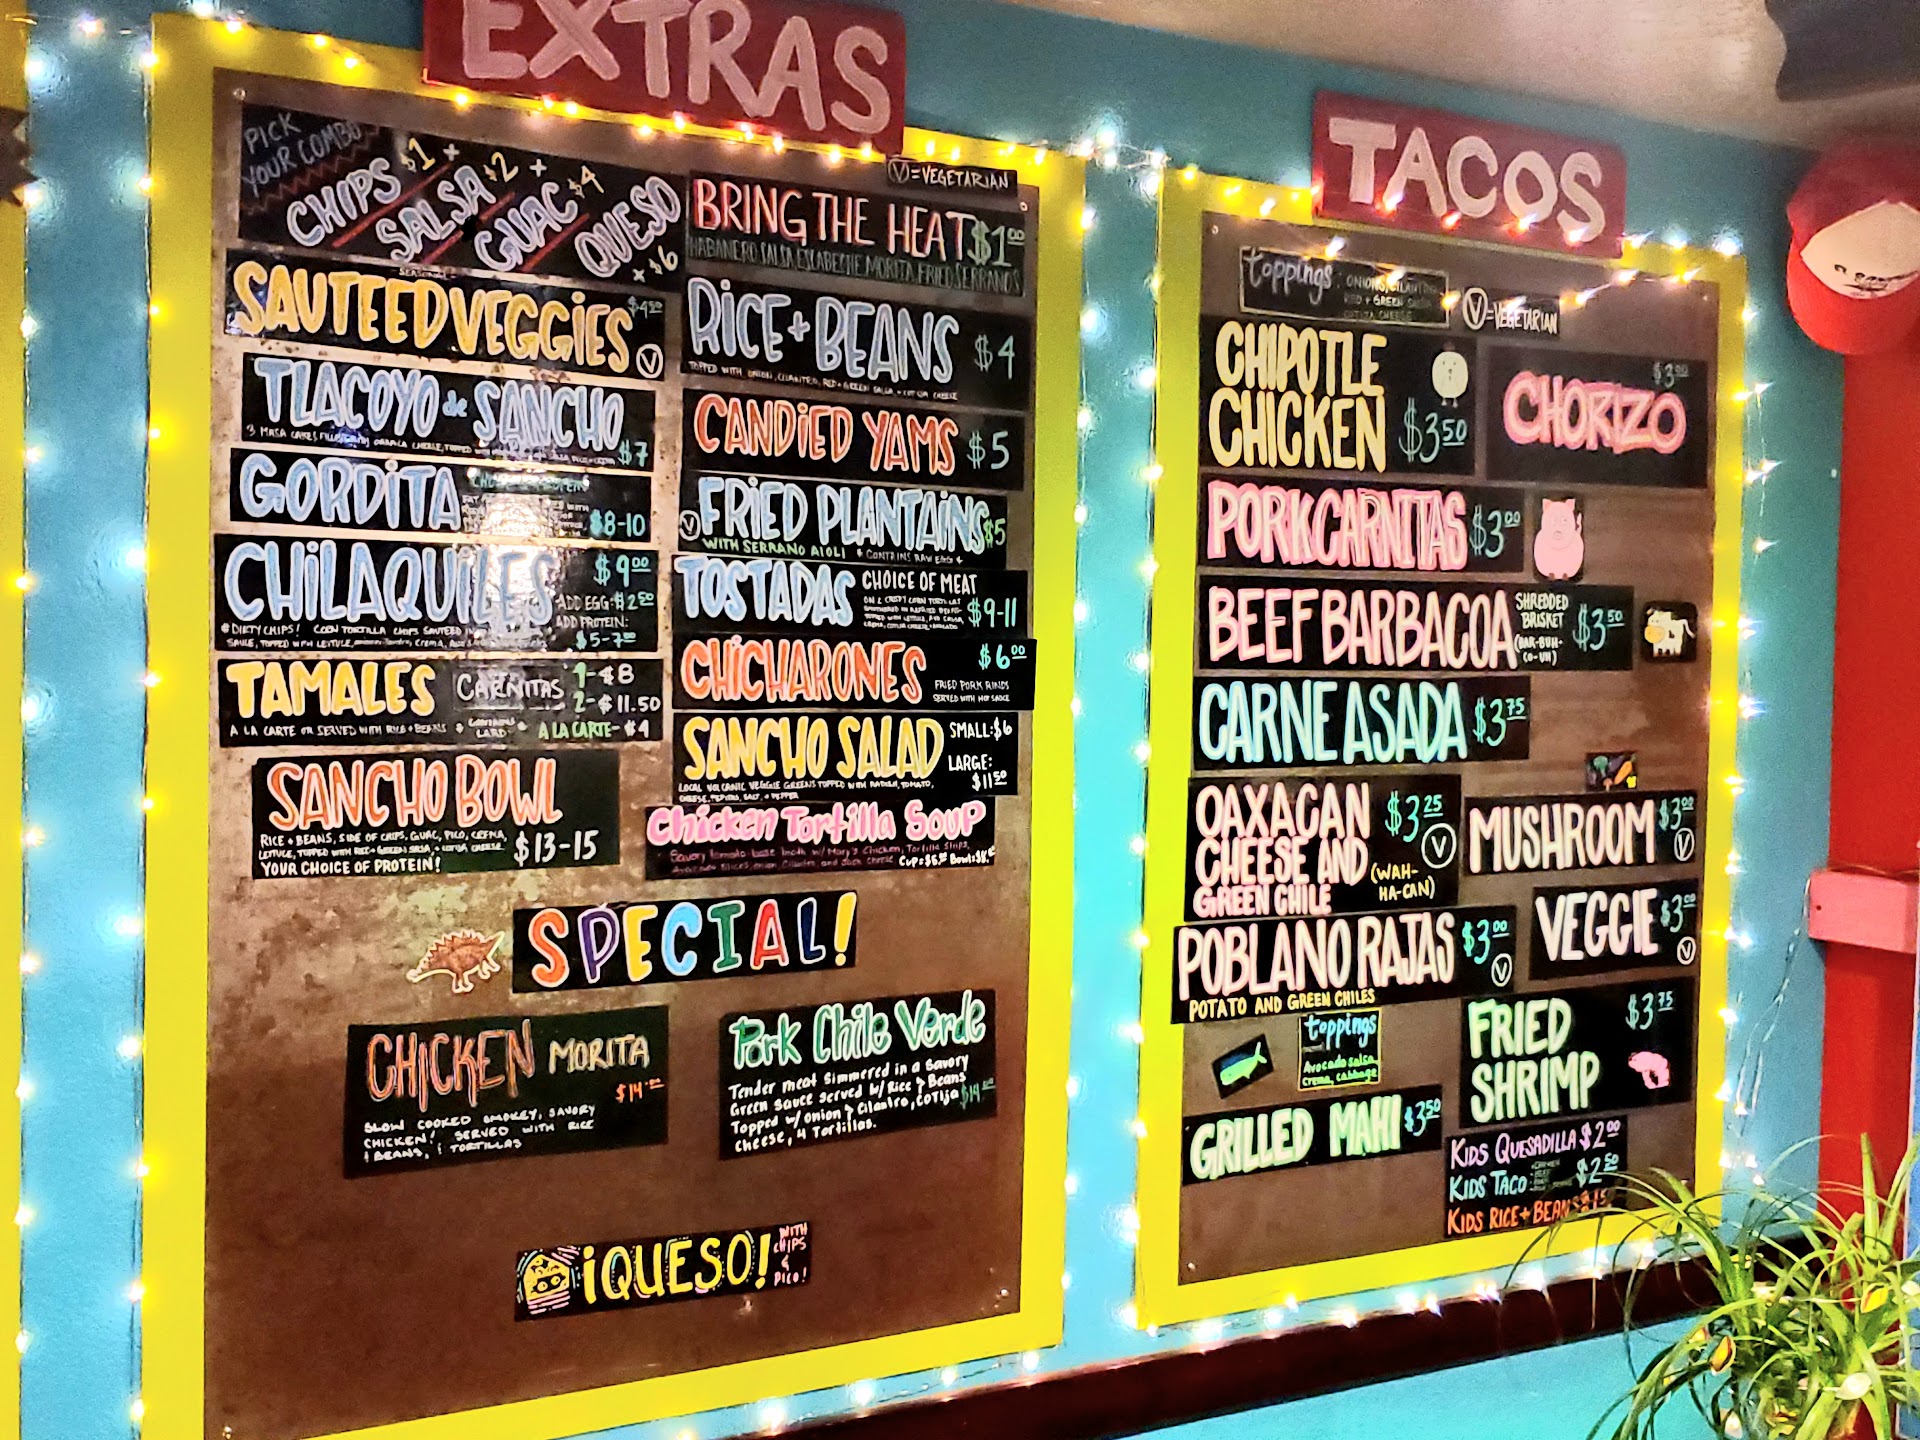 EXTRAS
PICK
YOUR COMBO
CHIPS $1 +
SALSA $2 +
GUAC $4
QUESO
x $6
V=VEGETARIAN
BRING THE HEAT $1⁰⁰
HABANERO SALSA ESCABECHE MORITA FRIED SERRANOS
SEASONAL
SAUTEED VEGGIES $4⁵⁰
V
RICE + BEANS $4
TOPPED WITH ONION, CILANTRO, RED + GREEN SALSA, + COTIJA CHEESE
TLACOYO de SANCHO
3 MASA CAKES FILLED WITH OAXACA CHEESE, TOPPED WITH
$7
CANDIED YAMS $5
GORDITA
$8-10
V FRIED PLANTAINS $5
WITH SERRANO AIOLI * CONTAINS RAW EGG *
CHILAQUILES $9⁰⁰
ADD EGG: $2⁵⁰
ADD PROTEIN:
$5-7⁰⁰
*DIRTY CHIPS! CORN TORTILLA CHIPS SAUTEED IN
SAUCE, TOPPED WITH LETTUCE, CREMA,
TOSTADAS CHOICE OF MEAT
ON 2 CRISPY CORN TORTILLAS
$9-11
CHICHARONES $6⁰⁰
FRIED PORK RINDS
SERVED WITH HOT SAUCE
TAMALES CARNITAS 1-$8
2-$11.50
A LA CARTE OR SERVED WITH RICE + BEANS * CONTAINS LARD * A LA CARTE- $4
SANCHO SALAD SMALL: $6
LARGE:
$11⁵⁰
LOCAL VOLCANIC VEGGIE GREENS TOPPED WITH RADISH, TOMATO,
CHEESE, PEPITAS, SALT, + PEPPER
SANCHO BOWL
RICE + BEANS, SIDE OF CHIPS, GUAC, PICO, CREMA,
LETTUCE, TOPPED WITH RED + GREEN SALSA, + COTIJA CHEESE.
YOUR CHOICE OF PROTEIN! $13-15
Chicken Tortilla Soup
Savory tomato base broth w/ Mary's Chicken, Tortilla Strips,
Avocado slices, onion, Cilantro, and Jack Cheese
SPECIAL!
CHICKEN MORITA
$14.⁰⁰
SLOW COOKED SMOKEY, SAVORY
CHICKEN! SERVED WITH RICE
& BEANS, & TORTILLAS
Pork Chile Verde
Tender meat Simmered in a Savory
Green Sauce Served w/ Rice & Beans
Topped w/ onion & Cilantro, CoTija
Cheese, 4 Tortillas.
¡QUESO! WITH
CHIPS
&
PICO!
TACOS
toppings: ONIONS, CILANTRO
RED + GREEN SALSA
COTIJA CHEESE
V=VEGETARIAN
CHIPOTLE
CHICKEN $3⁵⁰
$3⁰⁰
CHORIZO
PORK CARNITAS $3⁰⁰
BEEF BARBACOA SHREDDED
BRISKET
(BAR-BUH-
CO-UH)
$3⁵⁰
CARNE ASADA $3⁷⁵
OAXACAN
CHEESE AND
GREEN CHILE
$3²⁵
V
(WAH-
HA-CAN)
MUSHROOM $3⁰⁰
V
POBLANO RAJAS $3⁰⁰
V
POTATO AND GREEN CHILES
VEGGIE $3⁰⁰
V
toppings
Avocado salsa
crema, cabbage
FRIED
SHRIMP
$3⁷⁵
GRILLED MAHI $3⁵⁰
KIDS QUESADILLA $2⁰⁰
KIDS TACO $2⁵⁰
KIDS RICE + BEANS